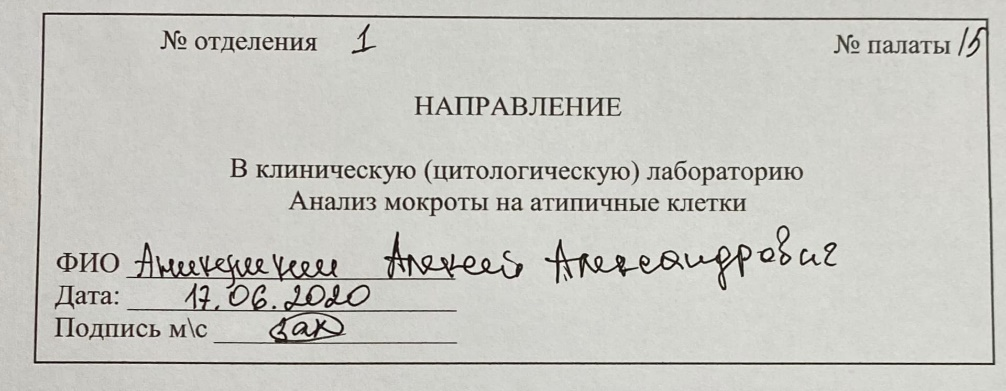 № отделения 1 № палаты 15
НАПРАВЛЕНИЕ
В клиническую (цитологическую) лабораторию
Анализ мокроты на атипичные клетки
ФИО Алексей Александрович
Дата: 17.06.2020
Подпись м\с